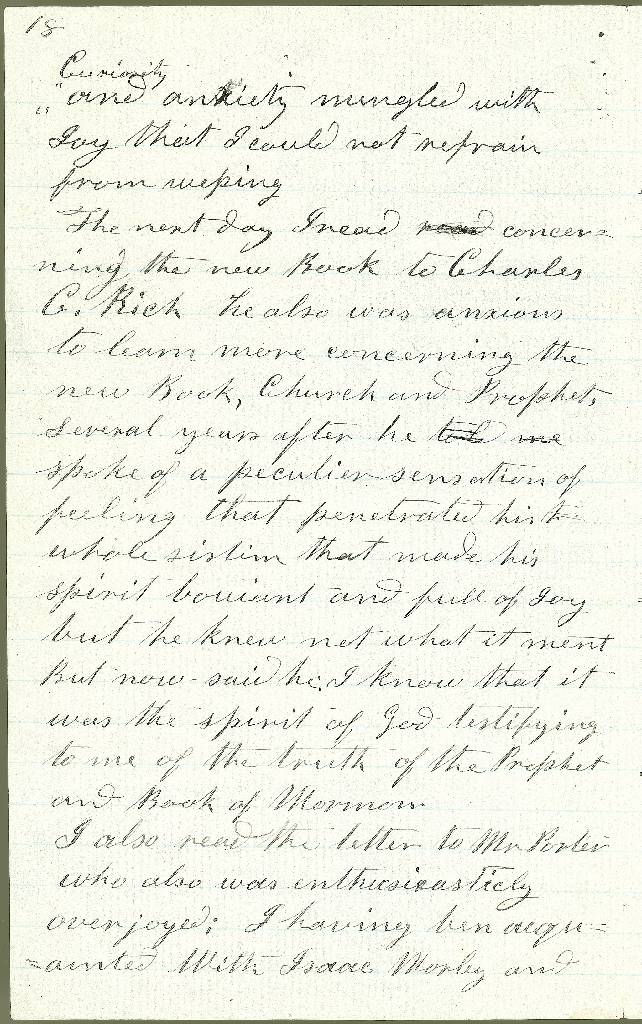 18
Curiosity
"and anxiety mingled with
Joy that I could not refrain
from weping
The next day I read read concer=
ning the new Book to Charles
C. Rich he also was anxious
to learn more concerning the
new Book, Church and Prophet,
several years after he told me
spoke of a peculier sensation of
feeling that penetrated his
whole sistim that made his
spirit bouiant and full of Joy
but he knew not what it ment
But now said he, I know that it
was the spirit of God testifying
to me of the truth of the Prophet
and Book of Mormon
I also read the letter to Mr Porter
who also was enthusicasticly
overjoyed; I having ben acqu=
=ainted With Isaac Morley and